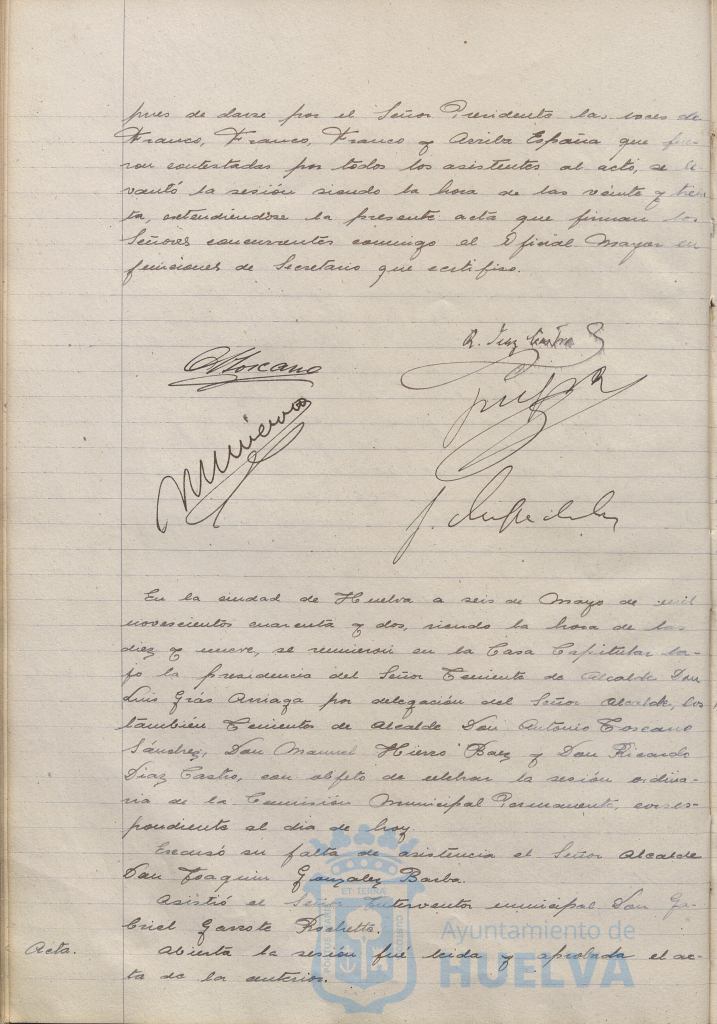 pues de darse por el Señor Presidente las voces de
Franco, Franco, Franco y Arriba España que fue-
ron contestadas por todos los asistentes al acto, se le-
vantó la sesión siendo la hora de las veinte y trein
ta, extendiéndose la presente acta que firman los
Señores concurrentes conmigo el Oficial Mayor en
funciones de Secretario que certifico.
R. Diaz Castro
A Toscano
En la ciudad de Huelva a seis de Mayo de mil
novescientos cuarenta y dos, siendo la hora de las
diez y nueve, se reunieron en la Casa Capitular ba-
jo la presidencia del Señor Teniente de Alcalde Don
Luis Grás Arriaga por delegación del Señor Alcalde, los
también Tenientes de Alcalde Don Antonio Toscano
Sánchez, Don Manuel Hierro Baez y Don Ricardo
Diaz Castro, con objeto de celebrar la sesión ordina-
ria de la Comisión Municipal Permanente, corres-
pondiente al día de hoy.
Escusó su falta de asistencia el Señor Alcalde
Don Joaquin Gonzalez Barba.
Asistió el Señor Interventor municipal Don Ga-
briel Garrote Rochette.
Acta. Abierta la sesión fué leida y aprobada el ac-
ta de la anterior.
ET TERRÆ
PORTUS MARIS
CUSTODIA
Ayuntamiento de
HUELVA